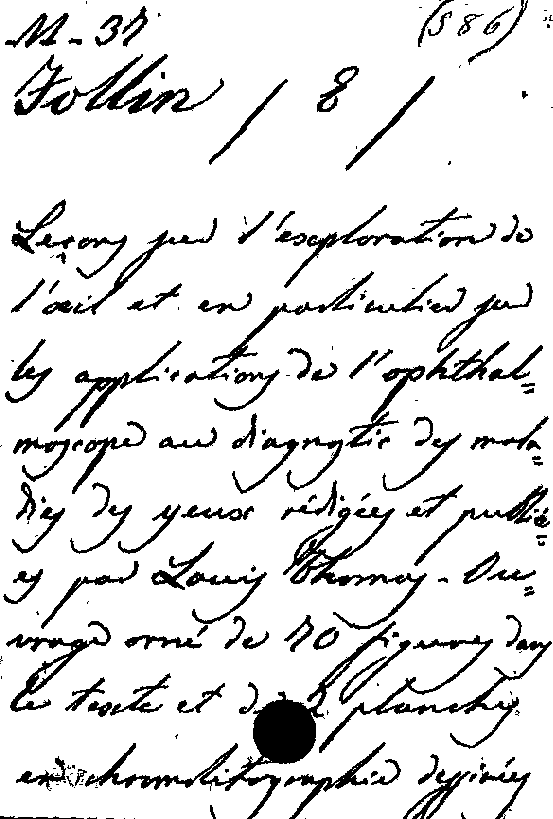 M-37 (586)
Follin / E /
Leçons sur l'exploration de
l'œil et en particulier sur
les applications de l'ophthal=
moscope au diagnostic des mala=
dies des yeux rédigées et publié=
es par Louis Thomas - Ou=
vrage orné de 70 figures dans
le texte et de 2 planches
en chromolitographie dessinées